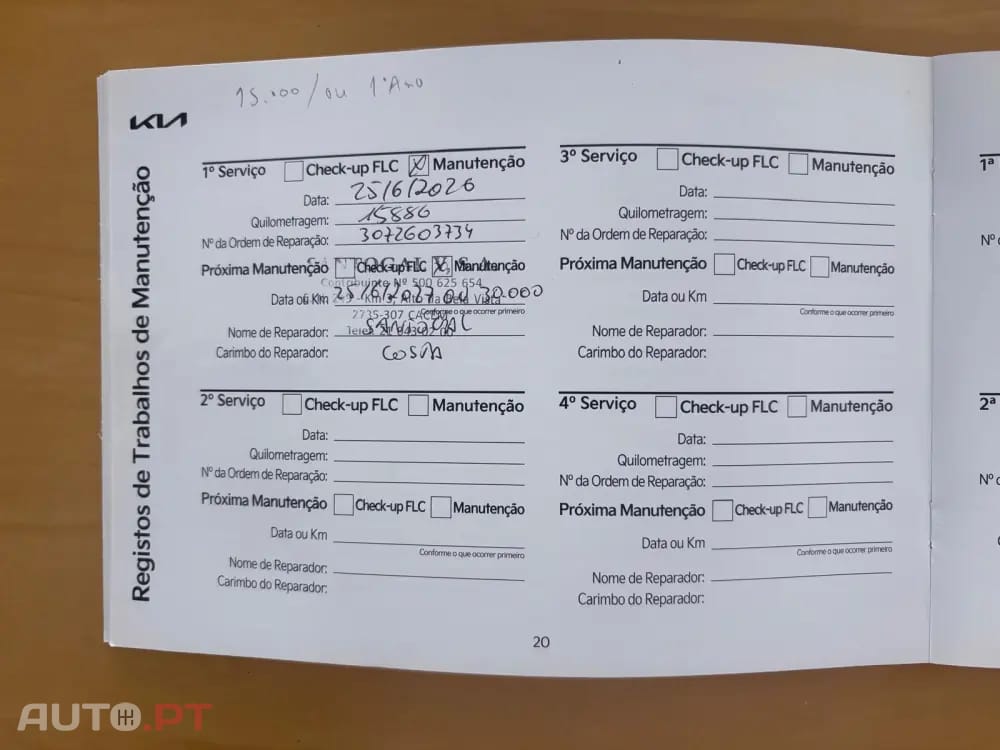 15.000/ou 1ºAno
KIA
Registos de Trabalhos de Manutenção
1º Serviço Check-up FLC X Manutenção
Data: 25/6/2026
Quilometragem: 15886
Nº da Ordem de Reparação: 3072603734
Próxima Manutenção Check-up FLC X Manutenção
SANTOGAL K, S.A.
Contribuinte Nº 500 625 654
Data ou Km 25/6/2027 ou 30.000
249 - Km 3, Alto da Bela Vista
Conforme o que ocorrer primeiro
2735-307 CACÉM
Nome de Reparador: SANTOGAL
Carimbo do Reparador:
2º Serviço Check-up FLC Manutenção
Data:
Quilometragem:
Nº da Ordem de Reparação:
Próxima Manutenção Check-up FLC Manutenção
Data ou Km
Conforme o que ocorrer primeiro
Nome de Reparador:
Carimbo do Reparador:
3º Serviço Check-up FLC Manutenção
Data:
Quilometragem:
Nº da Ordem de Reparação:
Próxima Manutenção Check-up FLC Manutenção
Data ou Km
Conforme o que ocorrer primeiro
Nome de Reparador:
Carimbo do Reparador:
4º Serviço Check-up FLC Manutenção
Data:
Quilometragem:
Nº da Ordem de Reparação:
Próxima Manutenção Check-up FLC Manutenção
Data ou Km
Conforme o que ocorrer primeiro
Nome de Reparador:
Carimbo do Reparador:
20
1ª
Nº
2ª
Nº
AUTO.PT